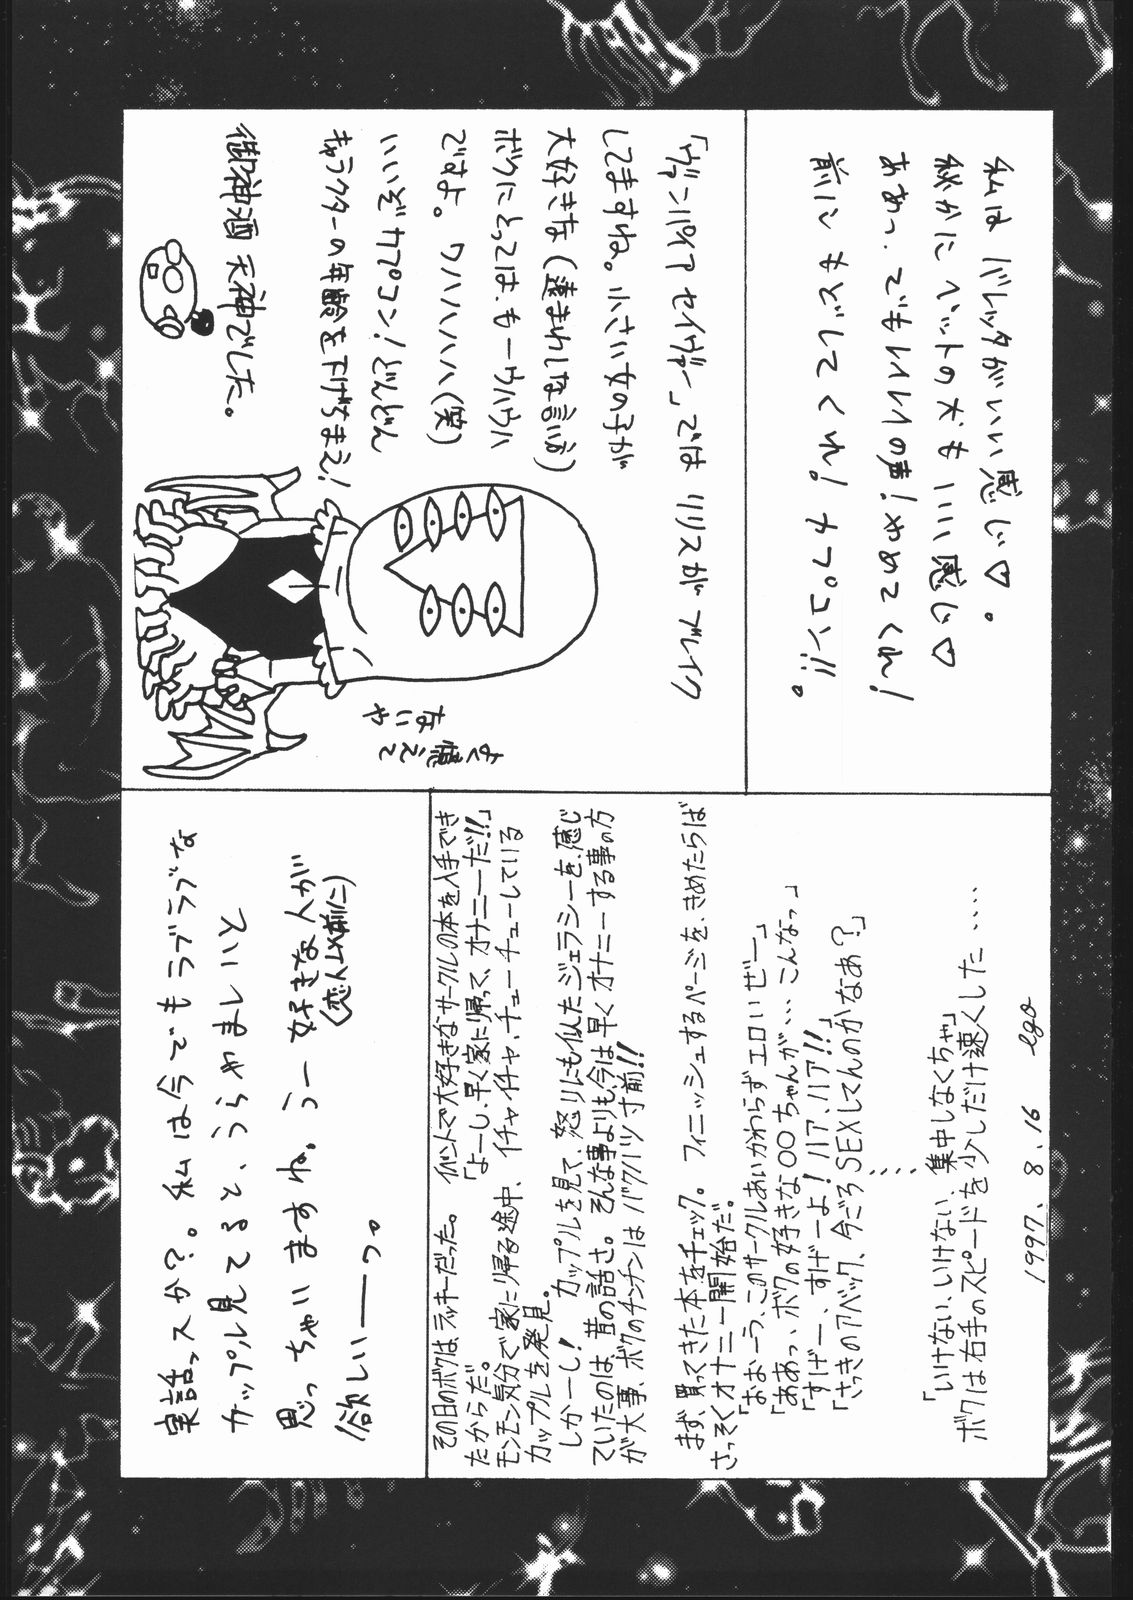 私は バレッタがいい感じ♡。
秘かにペットの犬もいい感じ♡
「ヴァンパイア セイヴァー」では リリスがブレイク
してますね。小さい女の子が
大好きな
ボクにとっては、もーウハウハ
ですよ。ワハハハハハ(笑)
いいぞカプコン!どんどん
キャラクターの年齢を下げちまえ!
御神酒天神でした。
よく憶えて
ないや
その日のボクは、ラッキーだった。 イベントで大好きなサークルの本を入手でき
たからだ。 「よーし、早く家に帰って、オナニーだ!!」
モンモン気分で家に帰る途中、イチャイチャ、チューチューしている
カップルを発見。
しかーし! カップルを見て、怒りにも似たジェラシーを、感じ
ていたのは、昔の話さ。そんな事よりも、今は早くオナニーする事の方
が大事、ボクのチンチンはバクハツ寸前!!
まず、買ってきた本をチェック。 フィニッシュするページを、きめたらば
さっそくオナニー開始だ。
「おおーう、このサークルあいかわらずエロいぜー」
「ああっ、ボクの好きな○○ちゃんが、、、こんなっ」
「すげー、すげーよ!ハァ、ハァ!!」
「さっきのアベック、今ごろSEXしてんのかなあ?」
……
「いけない、いけない、集中しなくちゃ」
ボクは右手のスピードを少しだけ速くした・・・・
1997. 8. 16 ego
実話っスか?。私は今でもラブラブな
カップル見てると、うらやましいと
思っちゃいますね。うー好きな人が
(恋人ム前に)
欲しいーーっ。